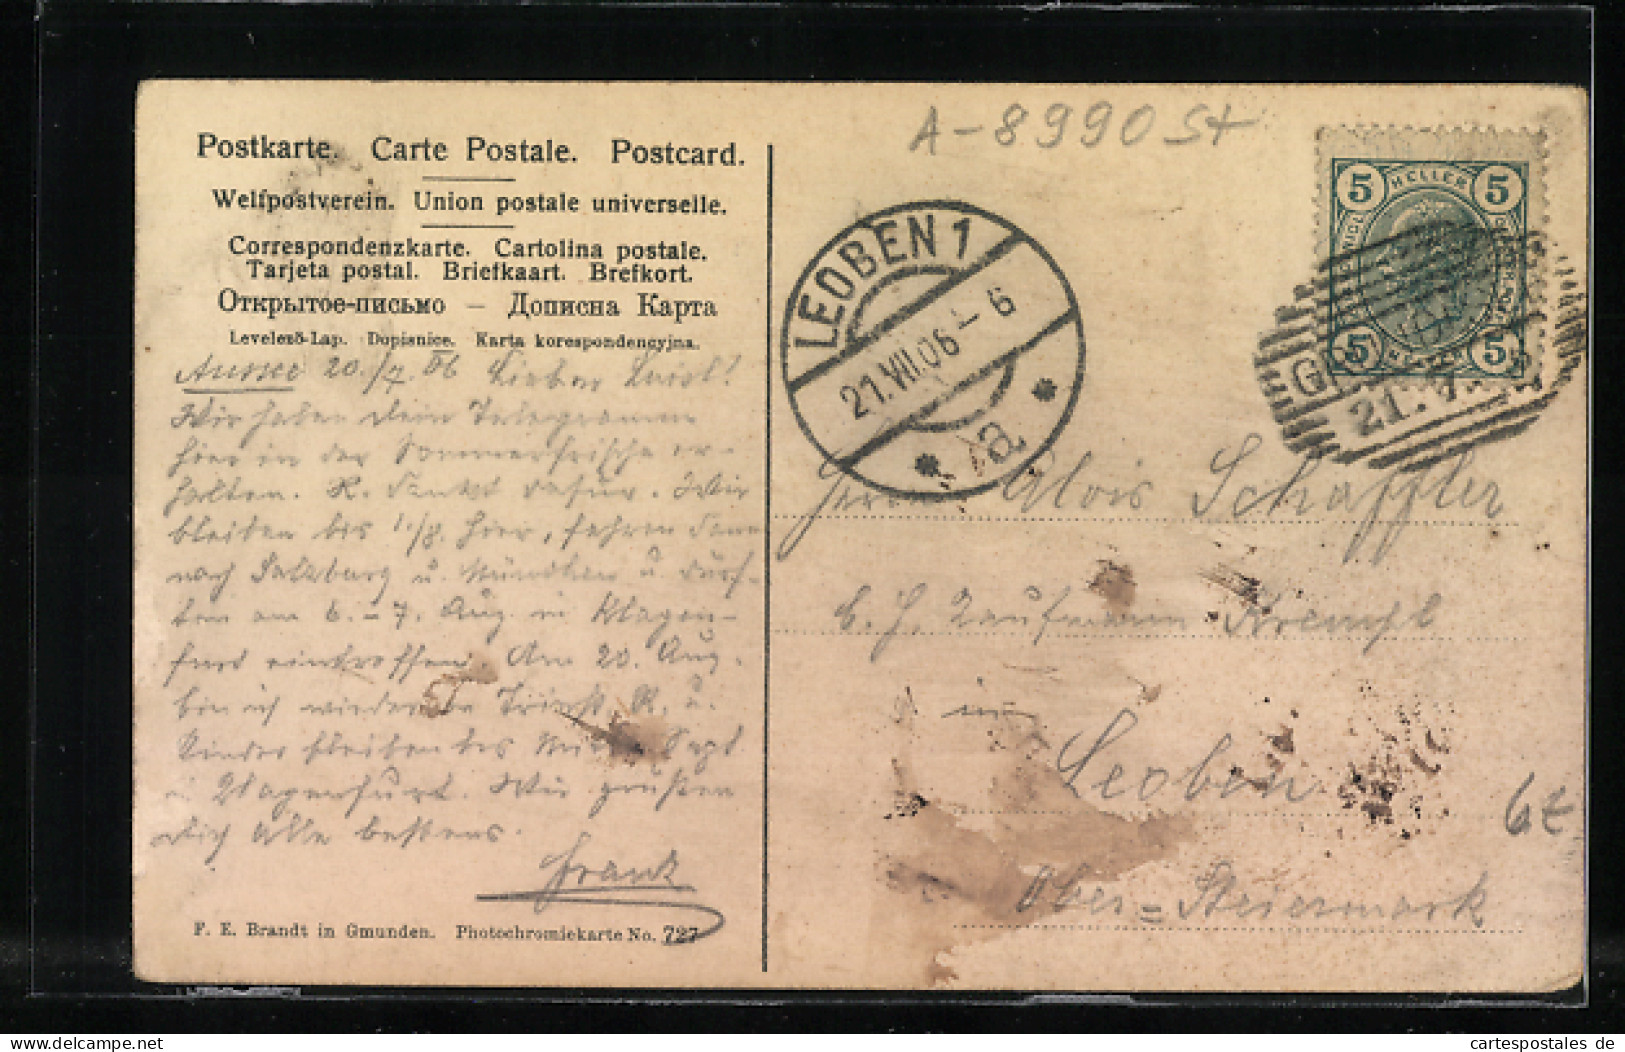 A-8990 St
Postkarte. Carte Postale. Postcard.
Weltpostverein. Union postale universelle.
Correspondenzkarte. Cartolina postale.
Tarjeta postal. Briefkaart. Brefkort.
Открытое-письмо — Дописна Карта
Levelező-Lap. Dopisnice. Karta korespondencyjna.
Aussee 20./7. 06 Lieber Luisl!
Wir haben dein Telegramm
hier in der Sommerfrische er-
halten. R. dankt dafür. Wir
bleiben bis 1./8. hier, fahren dann
nach Salzburg u. München u. dürf-
ten am 6.-7. Aug. in Klagen-
furt eintreffen. Am 20. Aug.
bin ich wieder in Triest. R. u.
Kinder bleiben bis Mitte Sept
in Klagenfurt. Wir grüßen
dich alle bestens.
Frank
F. E. Brandt in Gmunden. Photochromiekarte No. 727
LEOBEN 1
21.VII.06 - 6
a
5 HELLER 5
5 HELLER 5
21.
Herrn Alois Schaffler
b. H. Kaufmann Krempl
in
Leoben
Ober=Steiermark
6t
cartespostales de
www.cartespostales.de